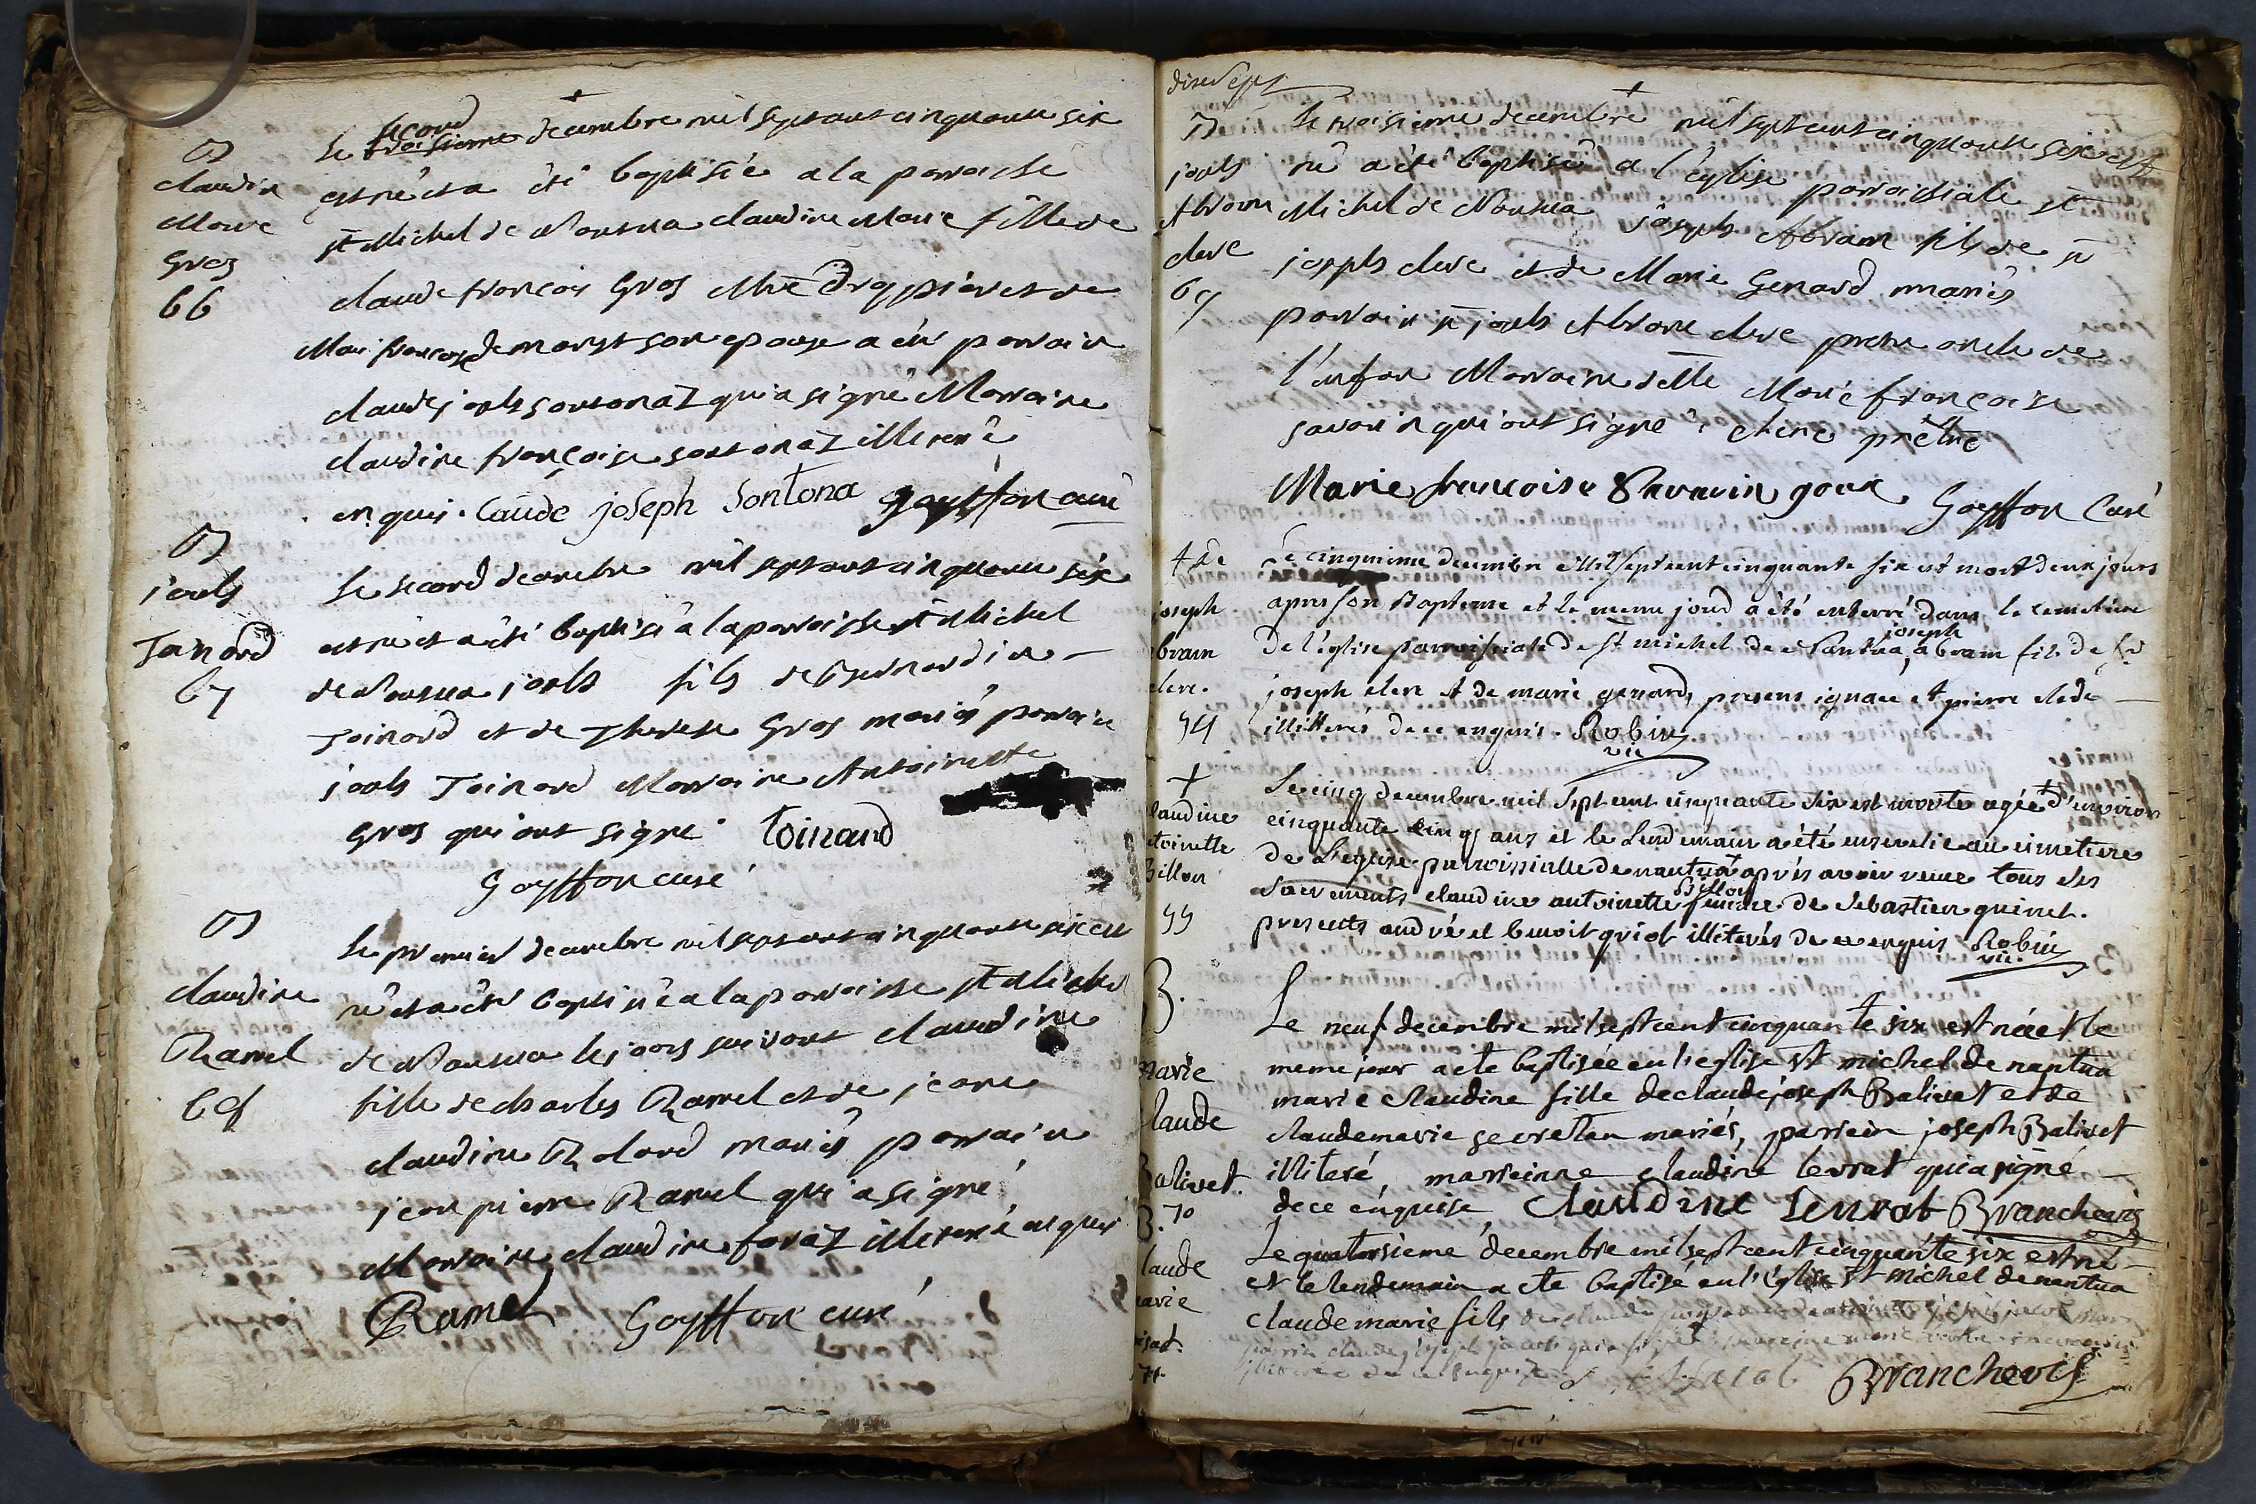 B
claudin
Marie
Gros
66
le second troisieme decembre mil sept cent cinquante six
est né et a été baptisée a la paroisse
st Michel de Nantua claudine Marie fille de
claude francois Gros Mtre Drappier et de
Marie francoise demornst son epouse a eu parrain
claude joseph sontonaz qui a signé Marraine
claudine françoise sontonaz illiteré
enquis. Caude joseph Sontona Goyffon curé
B
joseph
Toinard
67
le second decembre mil sept cent cinquante six
est né et a été baptisé a la paroisse st Michel
de Nantua joseph fils de Bernardin
Toinard et de Therese Gros mariés parrain
joseph Toinard Marraine Antoinette
Gros qui ont signé Toinard
Goyffon curé
B
claudine
Ramel
68
le premier decembre mil sept cent cinquante six est
né et a été baptisée a la paroisse st Michel
de Nantua le jour suivant claudine
fille de charles Ramel et de jeane
claudine Rolard mariés parrain
jean pierre Ramel qui a signé
Marraine claudine foraz illiteré enquis
Ramel Goyffon curé
dixsept
B
joseph
Abram
clere
69
le troisieme decembre mil sept cent cinquante six est
né a été baptisé a l'eglise paroissiale st
Michel de Nantua joseph Abram fils de sr
joseph clere et de Marie Genard mariés
parrain sr joseph Abram clere pretre oncle de
l'enfan Marraine delle Marie françoise
savarin qui ont signé clere prêtre
Marie francoise Savarin goux Goyffon Curé
joseph
abram
clere.
54
Le cinquieme decembre mil sept cent cinquante six est mort deux jours
apres son Bapteme et le meme jour a été enterré dans le cemetiere
De l'eglise parroissiale de st michel de Nantua, joseph abram fils de sr
joseph clere et de marie genard, presens ignace et pierre clede
illitterés de ce enquis. Robin
vic
+
claudine
antoinette
Billon
55
Le cinq decembre mil sept cent cinquante six est morte agée d'environ
cinquante cinq ans et le lendemain a été ensevelie au cimetiere
de L'eglise parroissialle de nantua après avoir recue tous les
sacrements claudine antoinette Billon femme de sebastien quinet.
presents andré et benoit griot illiterés de ce enquis Robin
vic.
B.
Marie
claude
Balivet.
70
Le neuf decembre mil sept cent cinquante six est née et le
meme jour a ete baptisée en l'eglise st michel de nantua
marie claudine fille de claude joseph Balivet et de
claudemarie secretan mariés, parrein joseph Balivet
illiteré, marreinne claudine levrat qui a signé
de ce enquise Claudine Levrat Brancheris
B.
claude
marie
71.
Le quatorsieme decembre mil sept cent cinquante six est né
et le lendemain a ete baptisé en l'Eglise st michel de nantua
claudemarie fils
parrin claude joseph jacob qui a signé marreine marie
illiterée de ce enquise Jacob Brancheris